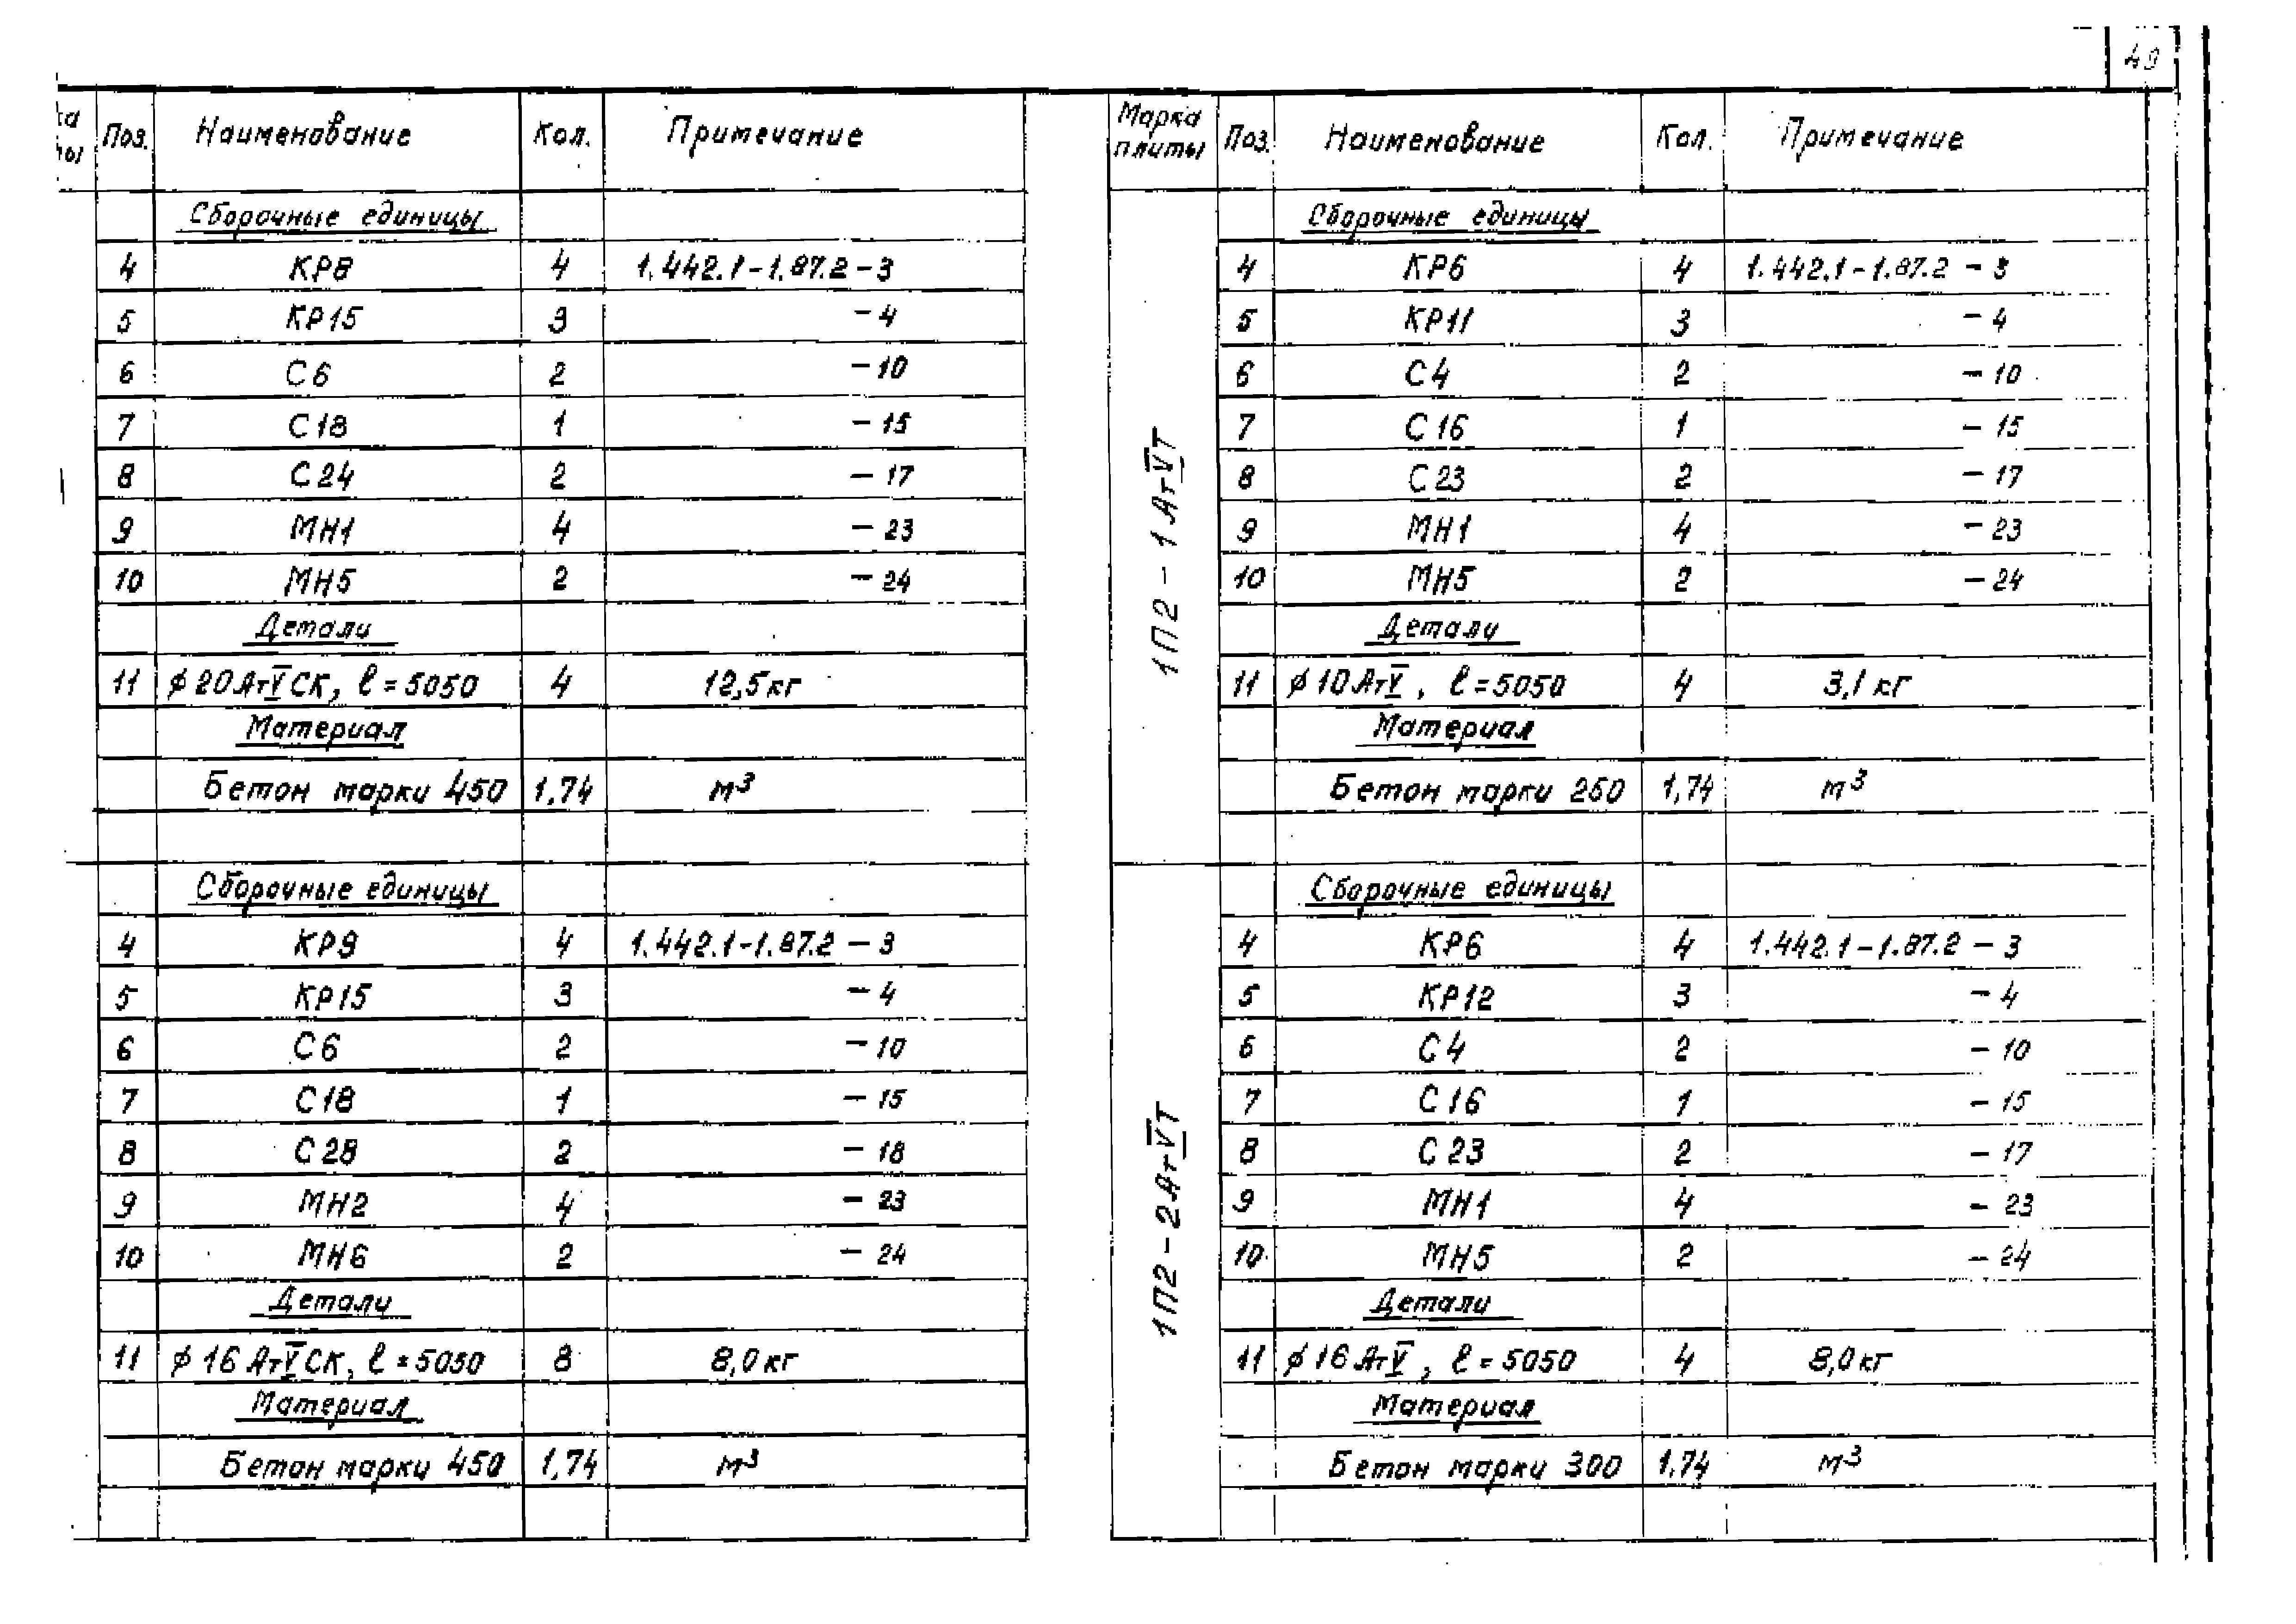 49
Поз. Наименование Кол. Примечание
Сборочные единицы
4 КР8 4 1.442.1-1.87.2-3
5 КР15 3 -4
6 С6 2 -10
7 С18 1 -15
8 С24 2 -17
9 МН1 4 -23
10 МН5 2 -24
Детали
11 ϕ20АтVСК, ℓ=5050 4 12,5кг
Материал
Бетон марки 450 1,74 м³
Сборочные единицы
4 КР9 4 1.442.1-1.87.2-3
5 КР15 3 -4
6 С6 2 -10
7 С18 1 -15
8 С28 2 -18
9 МН2 4 -23
10 МН6 2 -24
Детали
11 ϕ16АтVСК, ℓ=5050 8 8,0кг
Материал
Бетон марки 450 1,74 м³
Марка плиты Поз. Наименование Кол. Примечание
1П2-1АтVТ
Сборочные единицы
4 КР6 4 1.442.1-1.87.2-3
5 КР11 3 -4
6 С4 2 -10
7 С16 1 -15
8 С23 2 -17
9 МН1 4 -23
10 МН5 2 -24
Детали
11 ϕ10АтV, ℓ=5050 4 3,1кг
Материал
Бетон марки 250 1,74 м³
1П2-2АтVТ
Сборочные единицы
4 КР6 4 1.442.1-1.87.2-3
5 КР12 3 -4
6 С4 2 -10
7 С16 1 -15
8 С23 2 -17
9 МН1 4 -23
10 МН5 2 -24
Детали
11 ϕ16АтV, ℓ=5050 4 8,0кг
Материал
Бетон марки 300 1,74 м³